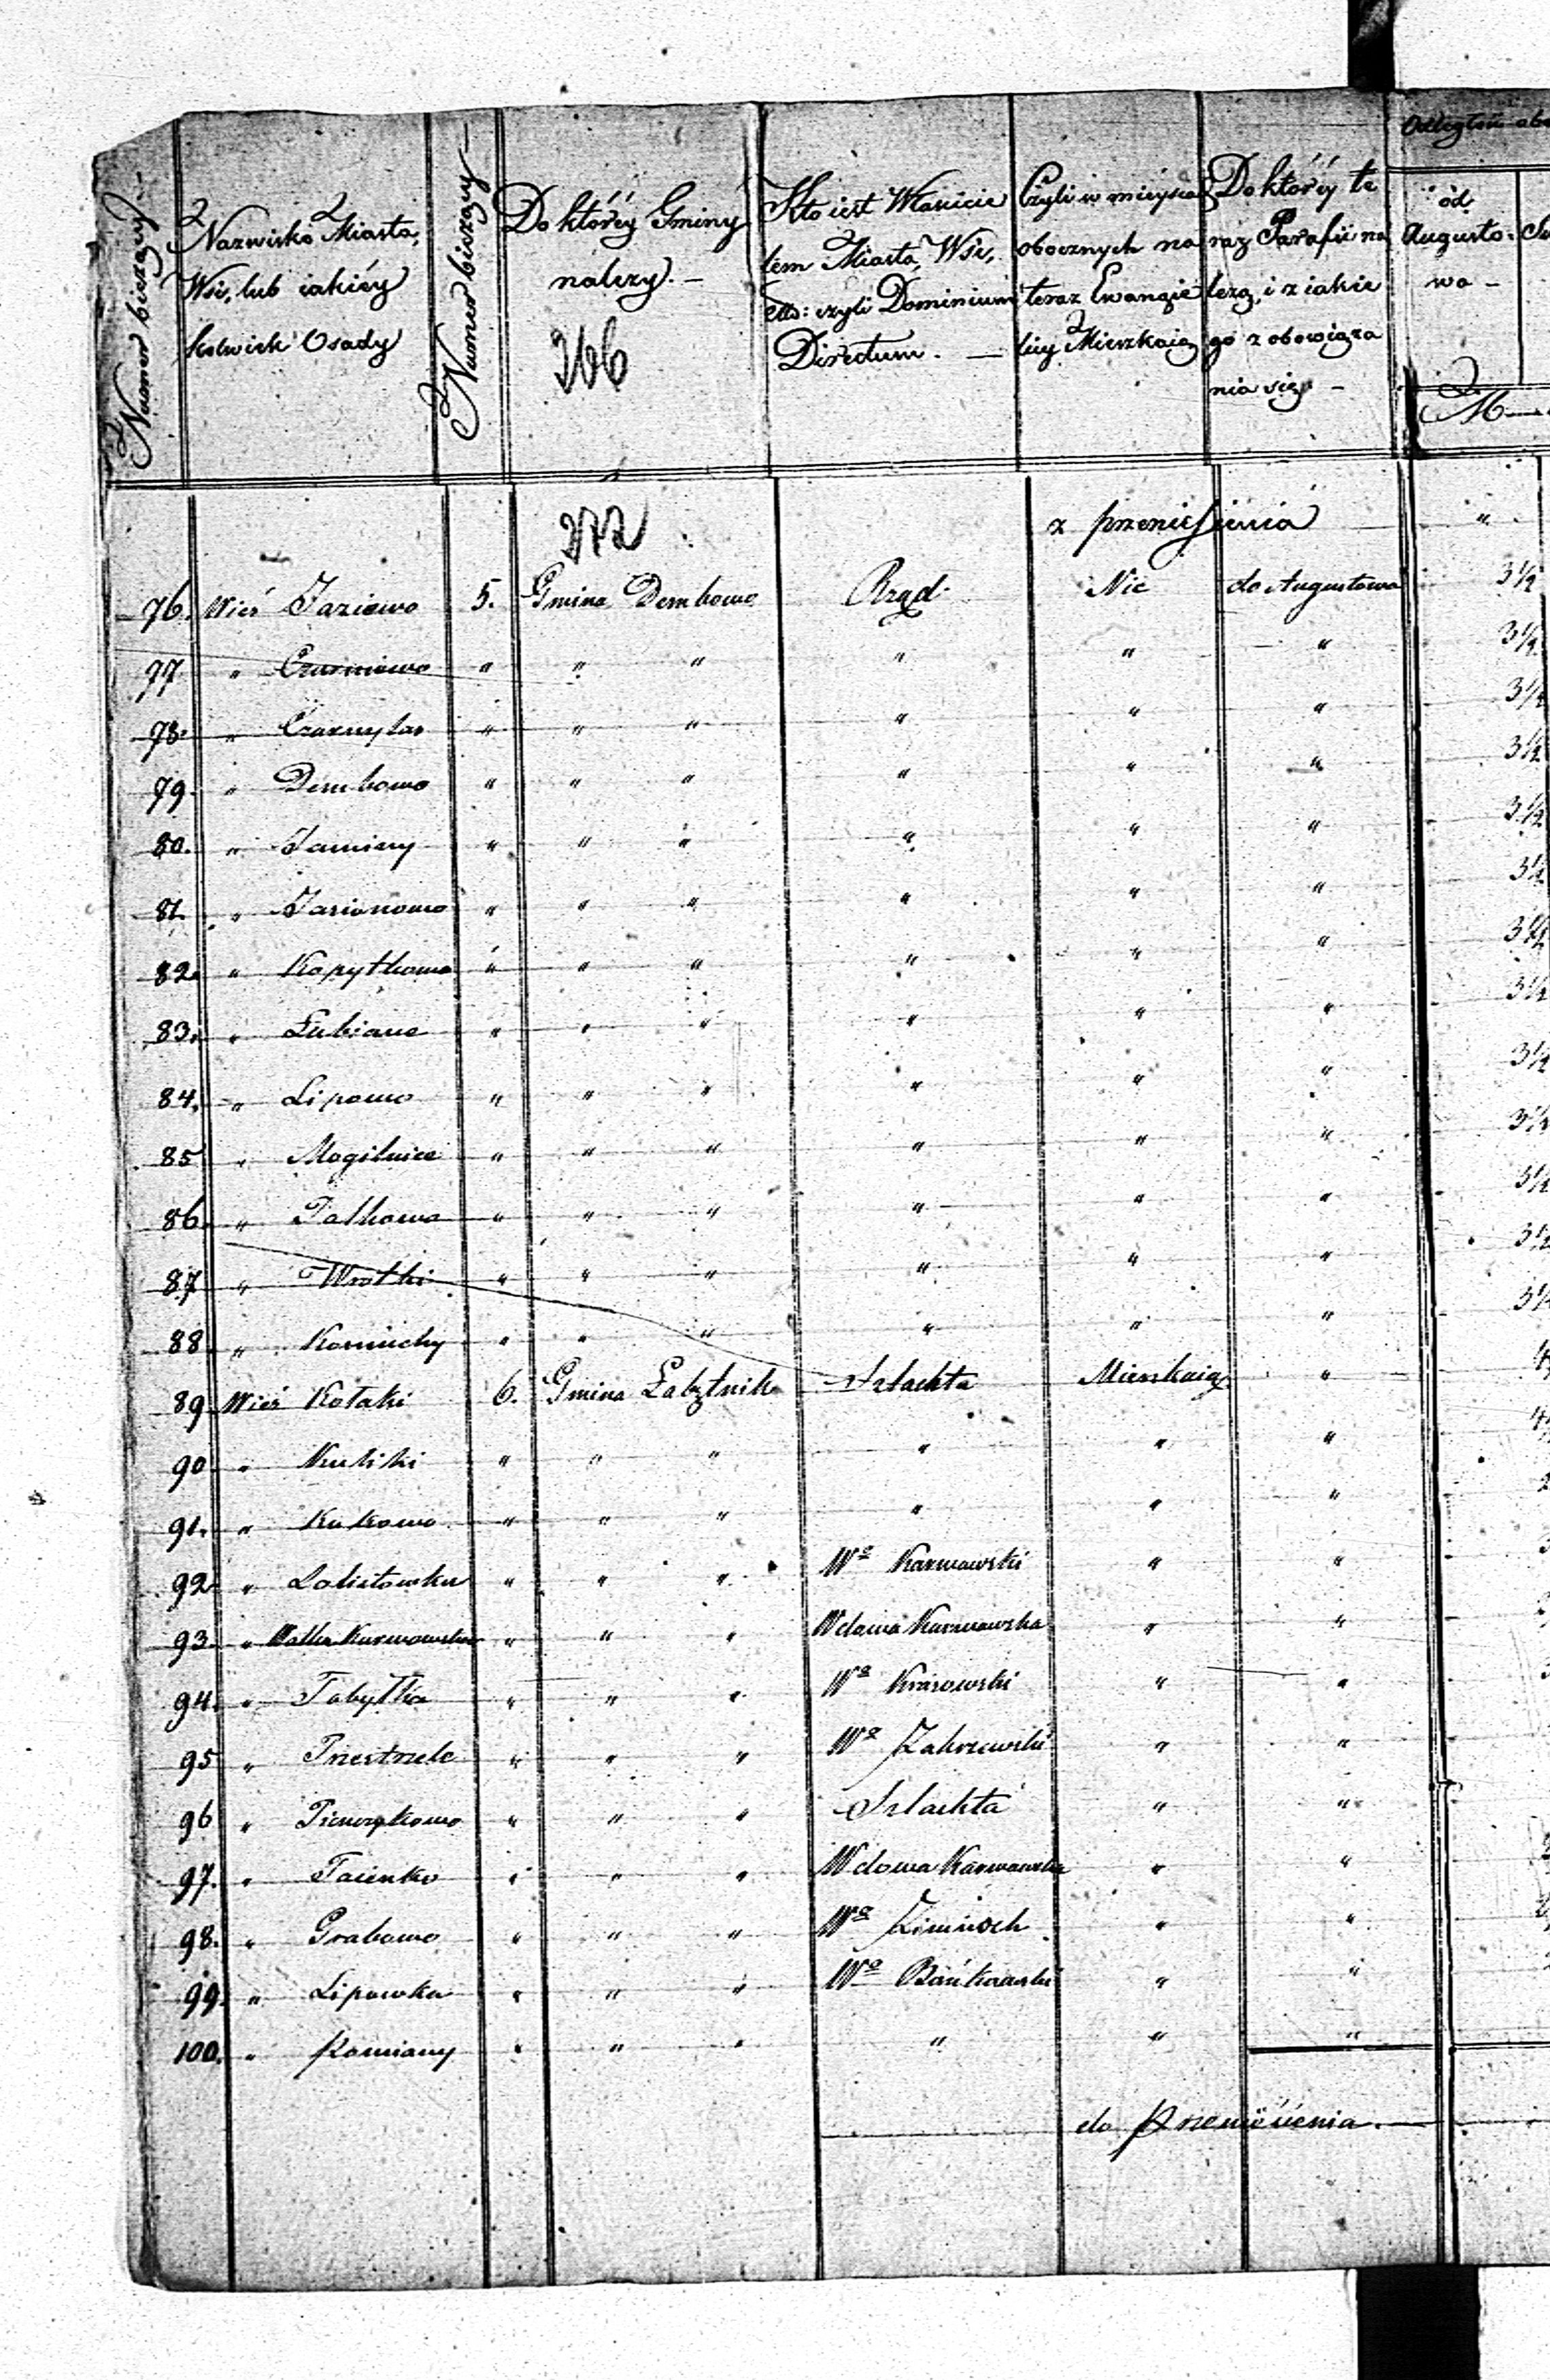 Numer bieżący.—
Nazwisko Miasta,
Wsi, lub iakiéy
kolwiek Osady
Numer bieżący—
Do któréy Gminy
należy.—
266
Kto iest Właścicie
lem Miasta, Wsi,
etts: czyli Dominium
Directum. —
Czyli w mieysca
obocznych na
teraz Ewangie
licy Mieszkaią
Do któréy te
raz Parafii na
leżą, i z iakie
go zobowiąza
nia się —
Odległość obo
od
Augusto-
wa —
M—
272
z przeniesienia "
76. Wieś Jaziewo 5. Gmina Dembowo Rząd Nie do Augustowa 3½
77 " Czarniewo " " " " " " 3½
78. " Czarnylas " " " " " " 3½
79. " Dembowo " " " " " " 3½
80. " Jaminy " " " " " " 3½
81. " Jasionowo " " " " " " 3½
82. " Kopytkowo " " " " " " 3½
83. " Lubiane " " " " " " 3½
84. " Lipowo " " " " " " 3½
85 " Mogilnice " " " " " " 3½
86. " Polkowo " " " " " " 3½
87 " Wrotki " " " " " " 3½
88 " Kornuchy " " " " " "
89. Wieś Kołaki 6. Gmina Łabętnik Szlachta Mieszkaią "
90 " Kuliki " " " " " "
91. " Kukowo " " " " " "
92 " " " " Wº Karwowski " "
93. " Wolka Karwowska " " " Wdowa Karwowska " "
94. " Tabyłka " " " Wº Krasowski " "
95 " Przestrzele " " " Wº Zakrzewski " "
96 " Pieńczykowo " " " Szlachta " "
97. " Taienko " " " Wdowa Karwowska " "
98. " Grabowo " " " Wº " "
99. " Lipowka " " " Wº Bańkowski " "
100. " Romiany " " " " " "
do Przeniesienia.—